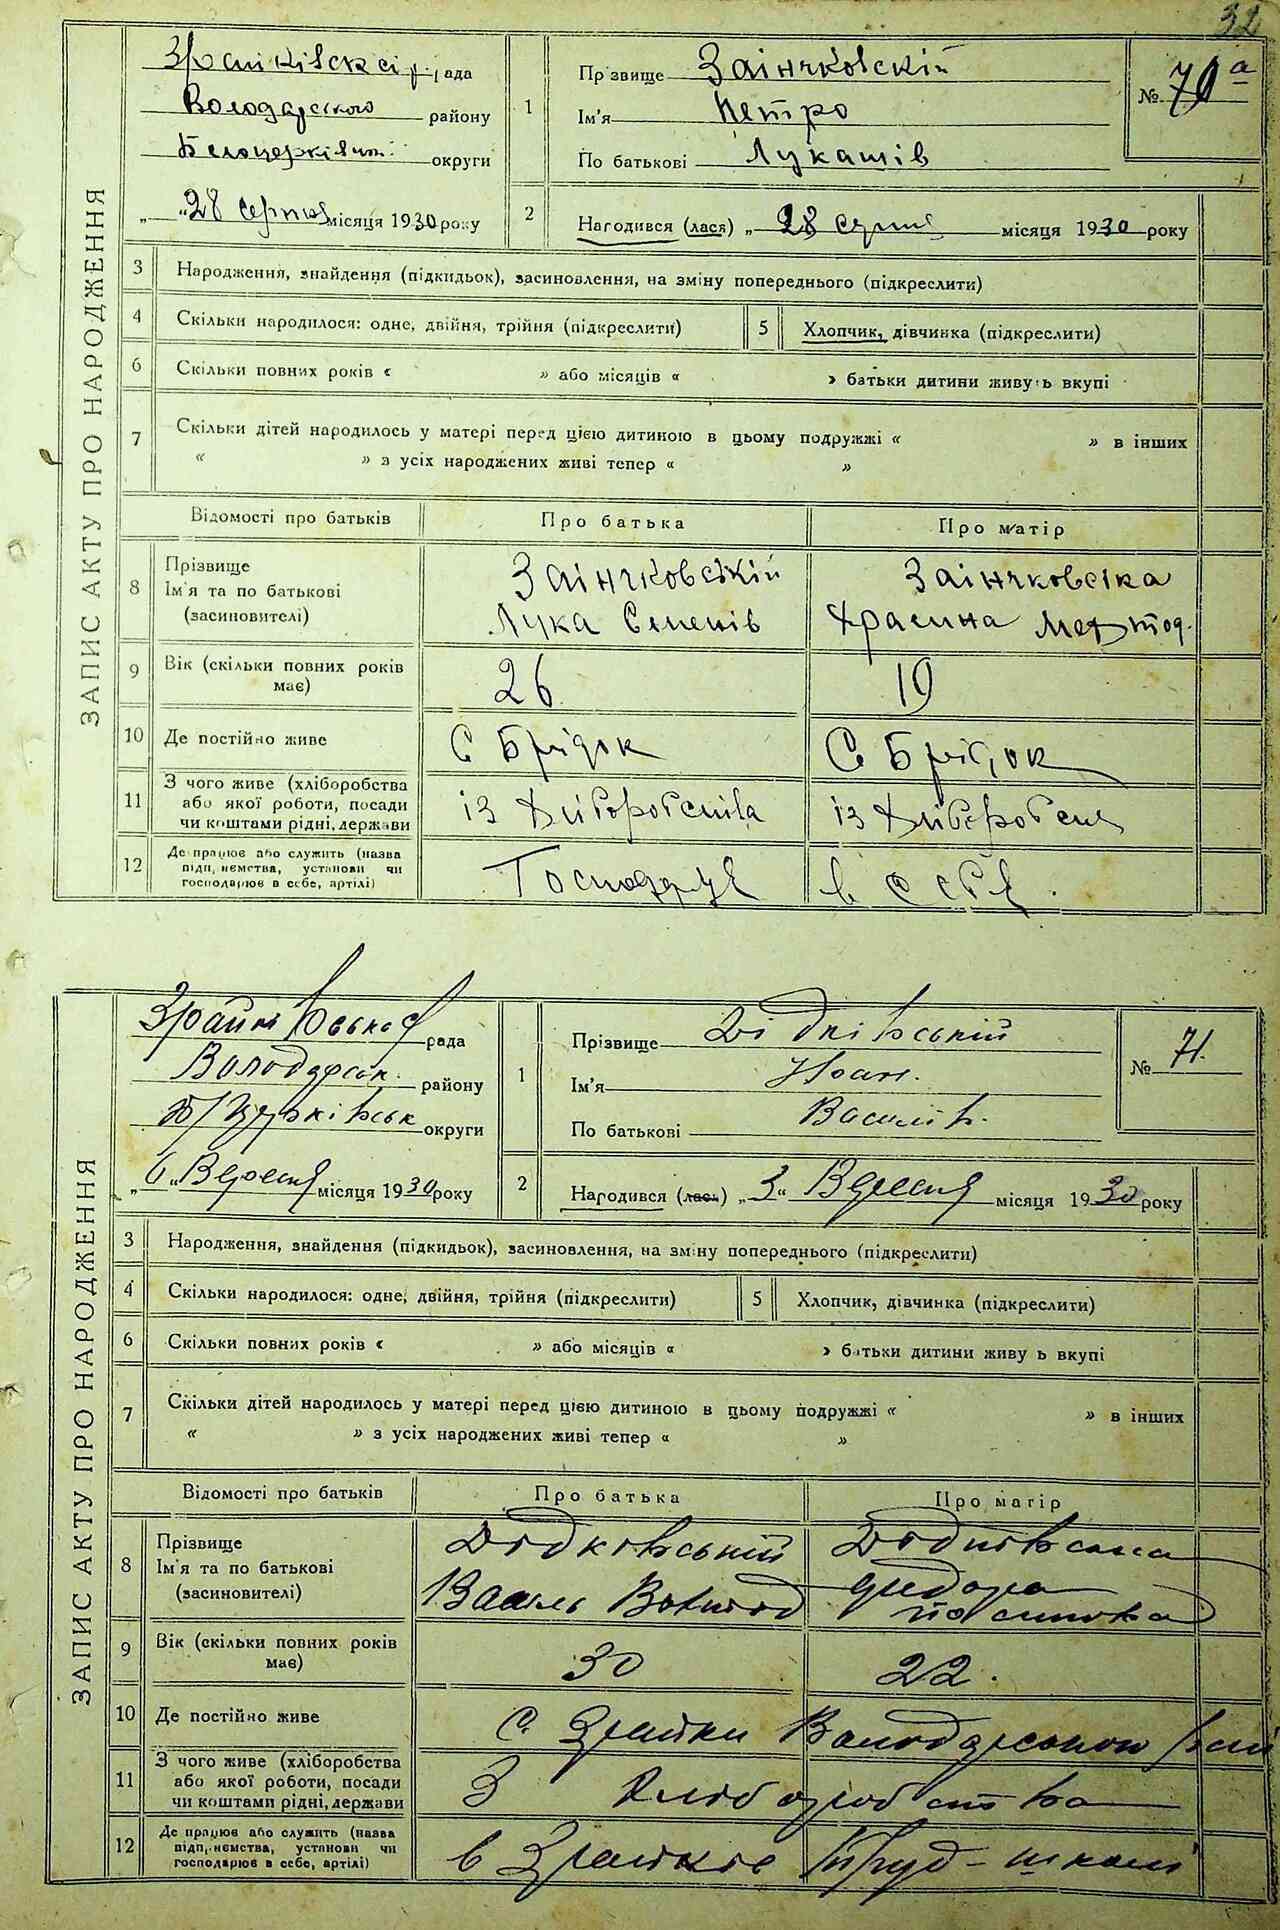 32
ЗАПИС АКТУ ПРО НАРОДЖЕННЯ
рада
Володарського району
округи
„28" серпня місяця 1930 року
1
Прізвище Заінчковскій
Ім'я Петро
По батькові Лукашів
№ 70а
2 Народився (лася) „28 серпня місяця 1930 року
3 Народження, знайдення (підкидьок), засиновлення, на зміну попереднього (підкреслити)
4 Скільки народилося: одне, двійня, трійня (підкреслити) 5 Хлопчик, дівчинка (підкреслити)
6 Скільки повних років « » або місяців « » батьки дитини живуть вкупі
7 Скільки дітей народилось у матері перед цією дитиною в цьому подружжі « » в інших
« » з усіх народжених живі тепер « »
Відомості про батьків Про батька Про матір
8 Прізвище Заінчковській Заінчковська
Ім'я та по батькові
(засиновителі) Лука Семенів
9 Вік (скільки повних років має) 26 19
10 Де постійно живе С Брідок С Брідок
11 З чого живе (хліборобства
або якої роботи, посади
чи коштами рідні, держави із Хліборобства із
12 Де працює або служить (назва
підприємства, установи чи
господарює в себе, артілі) Господарує в себе
ЗАПИС АКТУ ПРО НАРОДЖЕННЯ
рада
Володарськ. району
Б/Церківськ округи
„6" Вересня місяця 1930 року
1
Прізвище
Ім'я Йван.
По батькові Василів.
№ 71.
2 Народився (лась) „3" Вересня місяця 1930 року
3 Народження, знайдення (підкидьок), засиновлення, на зміну попереднього (підкреслити)
4 Скільки народилося: одне, двійня, трійня (підкреслити) 5 Хлопчик, дівчинка (підкреслити)
6 Скільки повних років « » або місяців « » батьки дитини живуть вкупі
7 Скільки дітей народилось у матері перед цією дитиною в цьому подружжі « » в інших
« » з усіх народжених живі тепер « »
Відомості про батьків Про батька Про матір
8 Прізвище
Ім'я та по батькові
(засиновителі) Василь
9 Вік (скільки повних років має) 30 22.
10 Де постійно живе с. Зрайки Володарського
11 З чого живе (хліборобства
або якої роботи, посади
чи коштами рідні, держави З Хліборобства
12 Де працює або служить (назва
підприємства, установи чи
господарює в себе, артілі) в Труд-школі